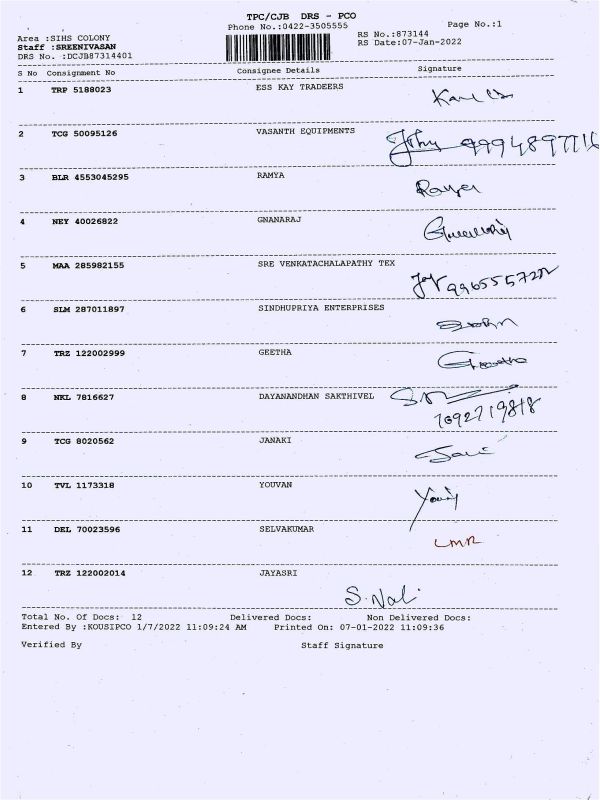 TPC/CJB DRS - PCO
Phone No.:0422-3505555 Page No.:1
Area :SIHS COLONY RS No.:873144
Staff :SREENIVASAN RS Date:07-Jan-2022
DRS No. :DCJB87314401
S No Consignment No Consignee Details Signature
1 TRP 5188023 ESS KAY TRADEERS
2 TCG 50095126 VASANTH EQUIPMENTS
3 BLR 4553045295 RAMYA
4 NEY 40026822 GNANARAJ
5 MAA 285982155 SRE VENKATACHALAPATHY TEX
6 SLM 287011897 SINDHUPRIYA ENTERPRISES
7 TRZ 122002999 GEETHA Geetha
8 NKL 7816627 DAYANANDHAN SAKTHIVEL
7092719818
9 TCG 8020562 JANAKI
10 TVL 1173318 YOUVAN
11 DEL 70023596 SELVAKUMAR
12 TRZ 122002014 JAYASRI
Total No. Of Docs: 12 Delivered Docs: Non Delivered Docs:
Entered By :KOUSIPCO 1/7/2022 11:09:24 AM Printed On: 07-01-2022 11:09:36
Verified By Staff Signature